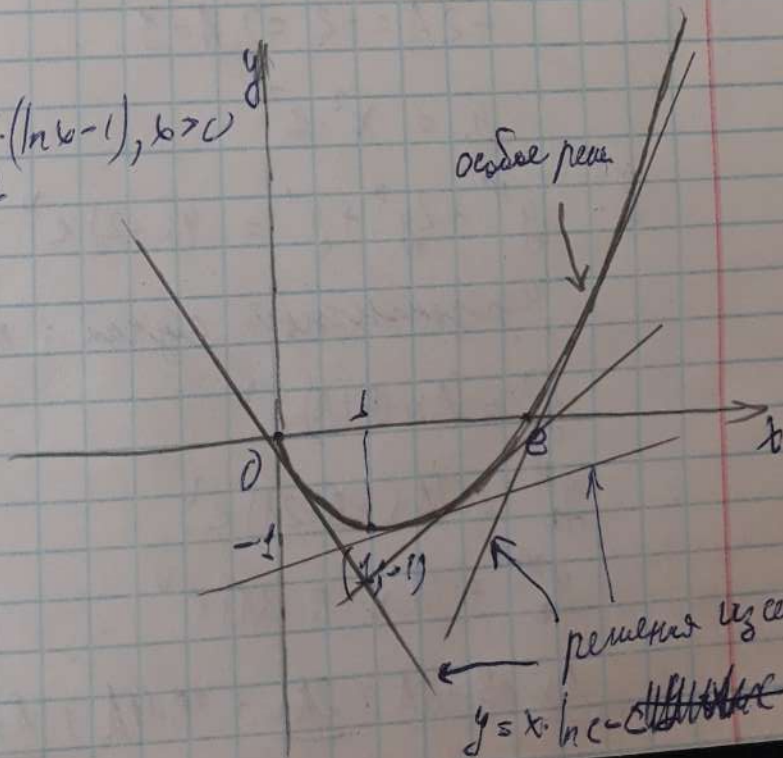 y
·(ln x-1), x>0
особое реше
1
0
e
x
-1
(1,-1)
решения из се
y = x·ln c - c